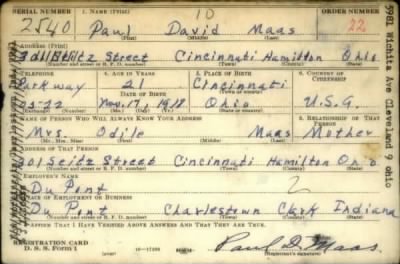 SERIAL NUMBER 1. NAME (Print) ORDER NUMBER
2540 Paul David Maas 10 22
(First) (Middle) (Last)
ADDRESS (Print)
Seitz Street Cincinnati Hamilton Ohio
(Number and street or R. F. D. number) (Town) (County) (State)
3. TELEPHONE 4. AGE IN YEARS 5. PLACE OF BIRTH 6. COUNTRY OF CITIZENSHIP
Parkway 21 Cincinnati
DATE OF BIRTH
Nov. 17, 1918 Ohio U.S.A.
7. NAME OF PERSON WHO WILL ALWAYS KNOW YOUR ADDRESS 8. RELATIONSHIP OF THAT PERSON
Mrs. Odile Maas Mother
9. ADDRESS OF THAT PERSON
301 Seitz Street Cincinnati Hamilton Ohio
(Number and street or R. F. D. number) (Town) (County) (State)
10. EMPLOYER'S NAME
Du Pont
11. PLACE OF EMPLOYMENT OR BUSINESS
Du Pont Charlestown Clark Indiana
(Number and street or R. F. D. number) (Town) (County) (State)
I AFFIRM THAT I HAVE VERIFIED ABOVE ANSWERS AND THAT THEY ARE TRUE.
REGISTRATION CARD
D. S. S. Form 1 Paul D. Maas
(Registrant's signature)
5981 Wichita Ave Cleveland 9 Ohio